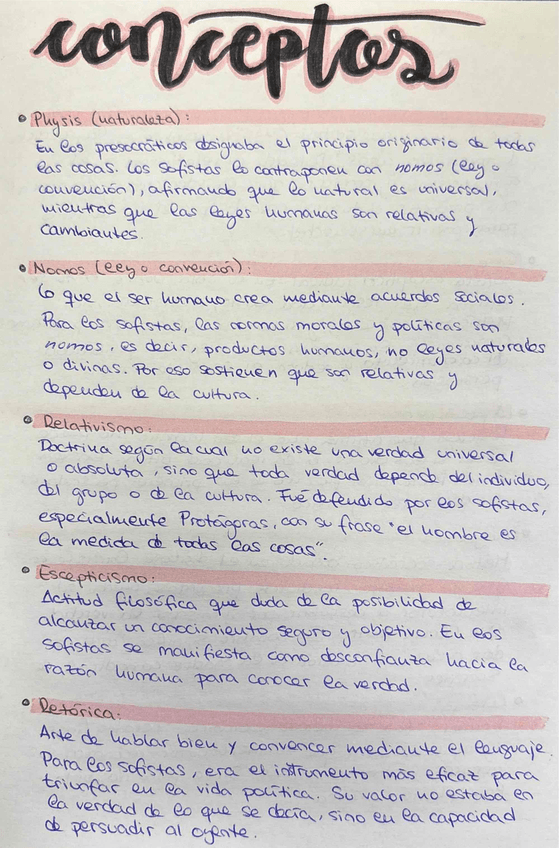 conceptos
• Physis (naturaleza):
En los presocráticos designaba el principio originario de todas
las cosas. Los sofistas lo contraponen con nomos (ley o
convención), afirmando que lo natural es universal,
mientras que las leyes humanas son relativas y
cambiantes.
• Nomos (ley o convención):
Lo que el ser humano crea mediante acuerdos sociales.
Para los sofistas, las normas morales y políticas son
nomos, es decir, productos humanos, no leyes naturales
o divinas. Por eso sostienen que son relativas y
dependen de la cultura.
• Relativismo:
Doctrina según la cual no existe una verdad universal
o absoluta, sino que toda verdad depende del individuo,
del grupo o de la cultura. Fué defendido por los sofistas,
especialmente Protágoras, con su frase "el hombre es
la medida de todas las cosas".
• Escepticismo:
Actitud filosófica que duda de la posibilidad de
alcanzar un conocimiento seguro y objetivo. En los
sofistas se manifiesta como desconfianza hacia la
razón humana para conocer la verdad.
• Retórica:
Arte de hablar bien y convencer mediante el lenguaje.
Para los sofistas, era el instrumento más eficaz para
triunfar en la vida política. Su valor no estaba en
la verdad de lo que se decía, sino en la capacidad
de persuadir al oyente.